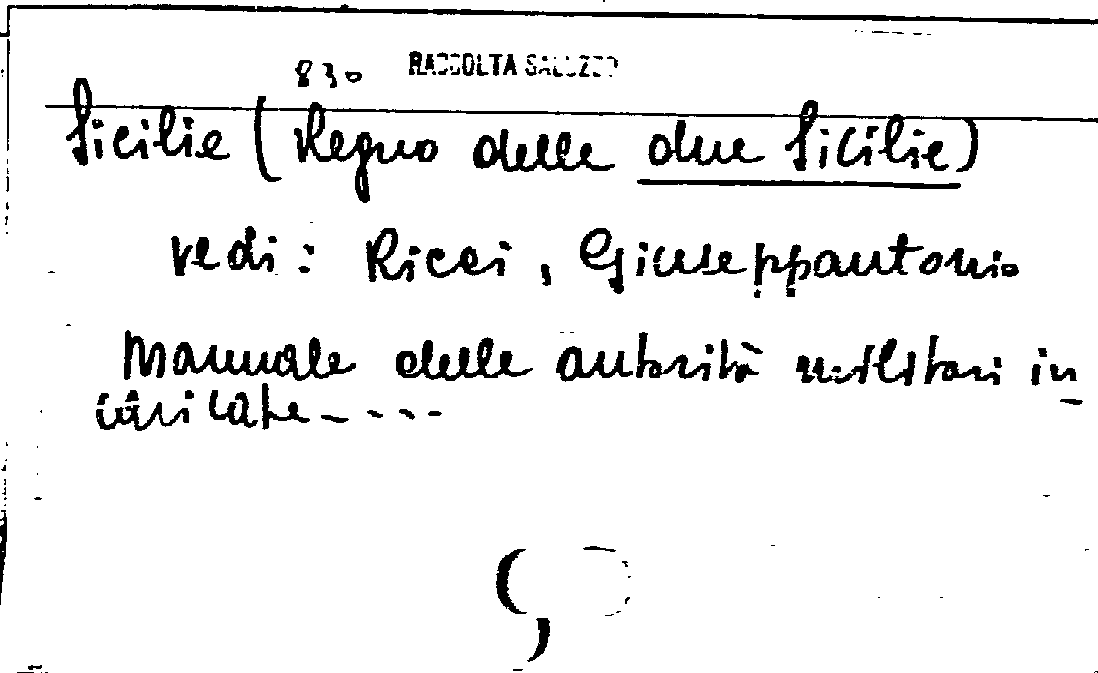 830 RACCOLTA SALUZZO
Sicilie (Regno delle due Sicilie)
vedi: Ricci, Giuseppantonio
Manuale delle autorità militari in-
caricate-----